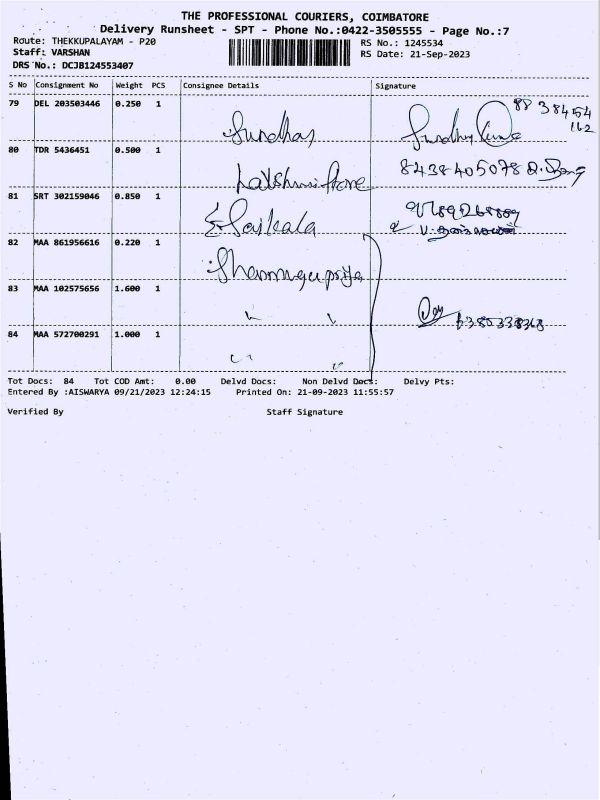 THE PROFESSIONAL COURIERS, COIMBATORE
Delivery Runsheet - SPT - Phone No.:0422-3505555 - Page No.:7
Route: THEKKUPALAYAM - P20
RS No.: 1245534
Staff: VARSHAN
RS Date: 21-Sep-2023
DRS No.: DCJB124553407
S No Consignment No Weight PCS Consignee Details Signature
79 DEL 203503446 0.250 1
88 38454
162
80 TDR 5436451 0.500 1 Lakshmi Store 8438405078
81 SRT 302159046 0.850 1 Saikala
82 MAA 861956616 0.220 1 Shanmugapriya
83 MAA 102575656 1.600 1 " "
6380338368
84 MAA 572700291 1.000 1 " "
Tot Docs: 84 Tot COD Amt: 0.00 Delvd Docs: Non Delvd Docs: Delvy Pts:
Entered By :AISWARYA 09/21/2023 12:24:15 Printed On: 21-09-2023 11:55:57
Verified By Staff Signature